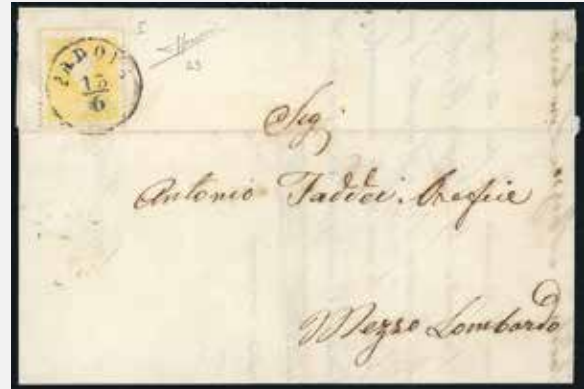 PADOVA
15
6
Sig.
Antonio Taddei Orefice
Mezzo Lombardo